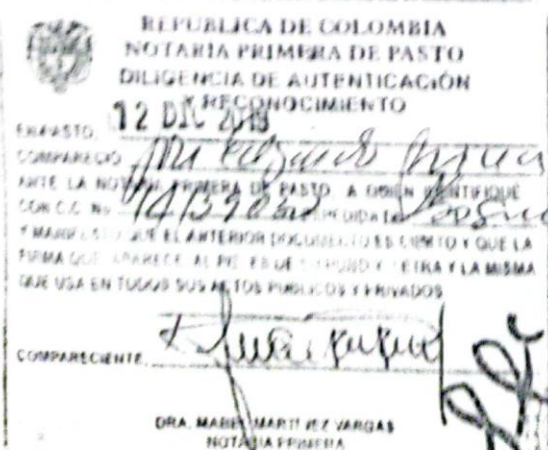 REPUBLICA DE COLOMBIA
NOTARIA PRIMERA DE PASTO
DILIGENCIA DE AUTENTICACIÓN
Y RECONOCIMIENTO
EN PASTO, 12 DIC
COMPARECIO
ANTE LA NOTARIA PRIMERA DE PASTO A QUIEN IDENTIFIQUE
CON C.C. No. EXPEDIDA EN
Y MANIFESTO QUE EL ANTERIOR DOCUMENTO ES CIERTO Y QUE LA
FIRMA QUE APARECE AL PIE ES DE SU PUÑO Y LETRA Y LA MISMA
QUE USA EN TODOS SUS ACTOS PUBLICOS Y PRIVADOS
COMPARECIENTE,
DRA. MABEL MARTINEZ VARGAS
NOTARIA PRIMERA